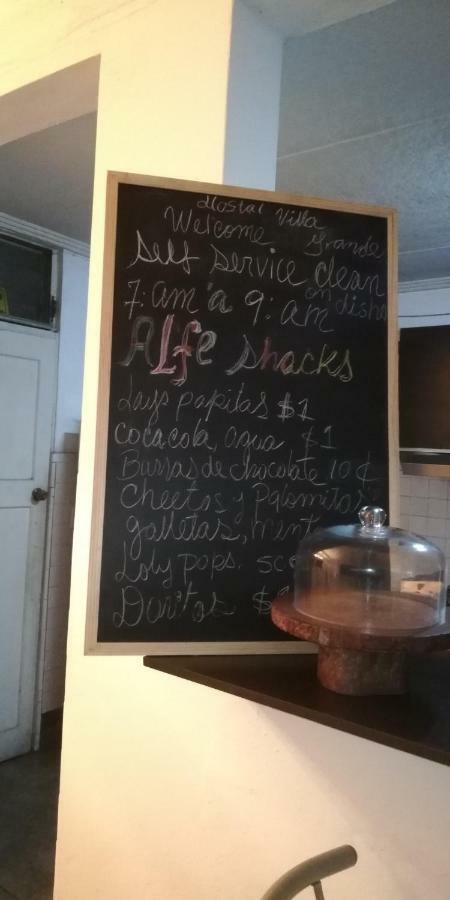 Hostal Villa
Welcome grande
Self service clean
7:am a 9:am on dishe
Alfe shacks
Lays papitas $1
Coca cola, agua $1
Burras de chocolate 10 ¢
Cheetos y Palomitas
galletas, ment
Loly pops. 5c
Doritos $